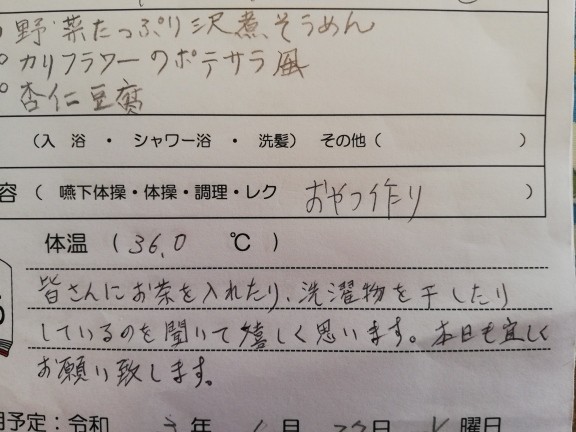 ○野菜たっぷり沢煮そうめん
○カリフラワーのポテサラ風
○杏仁豆腐
(入 浴 ・ シャワー浴 ・ 洗髪) その他 ( )
容 ( 嚥下体操・体操・調理・レク おやつ作り )
体温 ( 36.0 ℃ )
皆さんにお茶を入れたり、洗濯物を干したり
しているのを聞いて嬉しく思います。本日も宜しく
お願い致します。
予定:令和 年 月 日 曜日